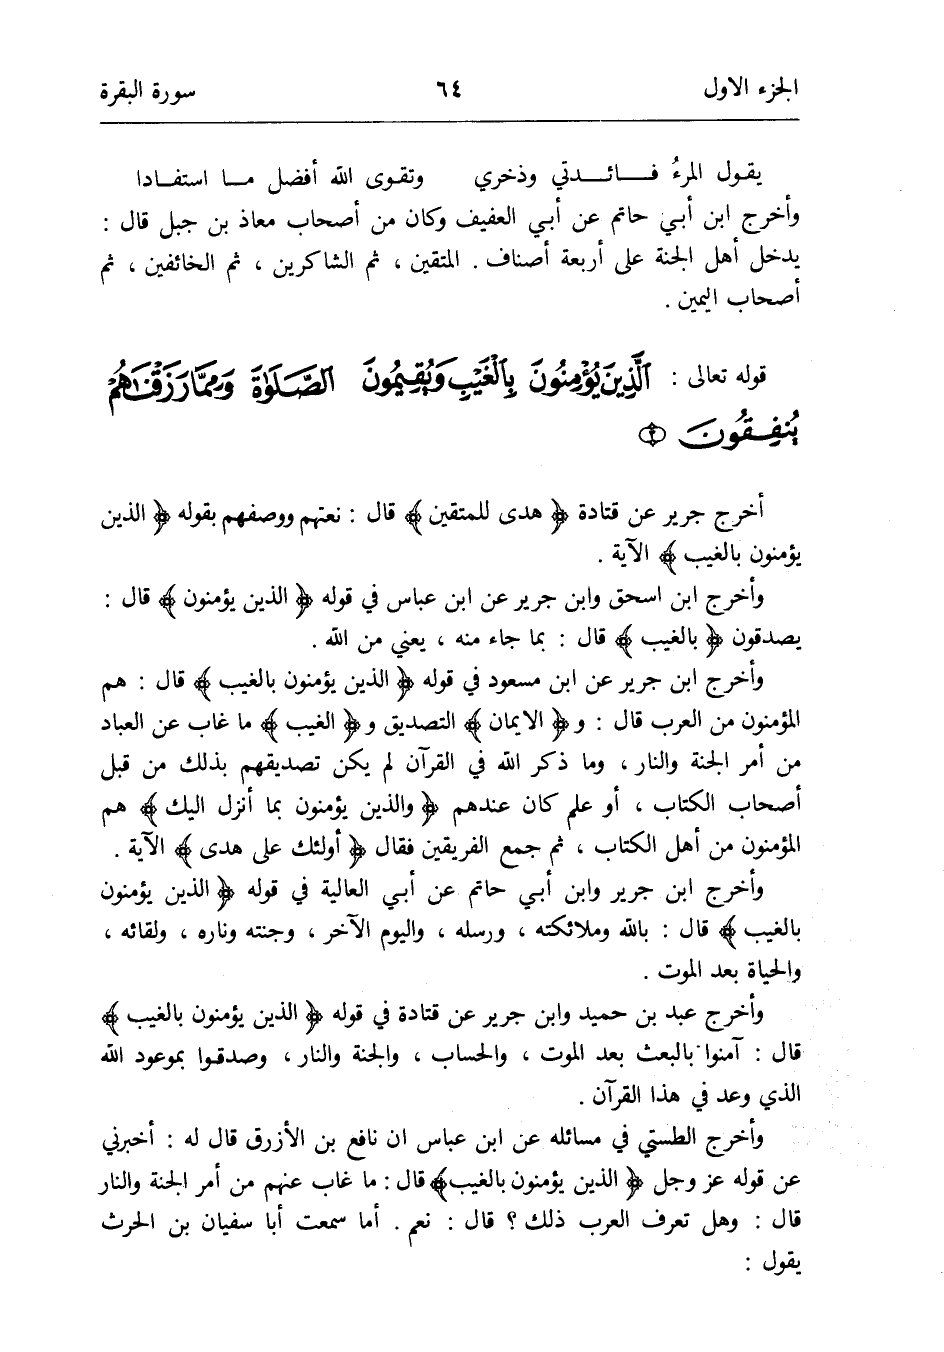 الجزء الاول ٦٤ سورة البقرة
يقول المرءُ فائدتي وذخري وتقوى الله أفضل ما استفادا
وأخرج ابن أبي حاتم عن أبي العفيف وكان من أصحاب معاذ بن جبل قال :
يدخل أهل الجنة على أربعة أصناف . المتقين ، ثم الشاكرين ، ثم الخائفين ، ثم
أصحاب اليمين .
قوله تعالى : ٱلَّذِينَ يُؤْمِنُونَ بِٱلْغَيْبِ وَيُقِيمُونَ ٱلصَّلَوٰةَ وَمِمَّا رَزَقْنَٰهُمْ
يُنفِقُونَ ﴿٣﴾
أخرج جرير عن قتادة ﴿ هدى للمتقين ﴾ قال : نعتهم ووصفهم بقوله ﴿ الذين
يؤمنون بالغيب ﴾ الآية .
وأخرج ابن اسحق وابن جرير عن ابن عباس في قوله ﴿ الذين يؤمنون ﴾ قال :
يصدقون ﴿ بالغيب ﴾ قال : بما جاء منه ، يعني من الله .
وأخرج ابن جرير عن ابن مسعود في قوله ﴿ الذين يؤمنون بالغيب ﴾ قال : هم
المؤمنون من العرب قال : و ﴿ الايمان ﴾ التصديق و ﴿ الغيب ﴾ ما غاب عن العباد
من أمر الجنة والنار ، وما ذكر الله في القرآن لم يكن تصديقهم بذلك من قبل
أصحاب الكتاب ، أو علم كان عندهم ﴿ والذين يؤمنون بما أنزل اليك ﴾ هم
المؤمنون من أهل الكتاب ، ثم جمع الفريقين فقال ﴿ أولئك على هدى ﴾ الآية .
وأخرج ابن جرير وابن أبي حاتم عن أبي العالية في قوله ﴿ الذين يؤمنون
بالغيب ﴾ قال : بالله وملائكته ، ورسله ، واليوم الآخر ، وجنته وناره ، ولقائه ،
والحياة بعد الموت .
وأخرج عبد بن حميد وابن جرير عن قتادة في قوله ﴿ الذين يؤمنون بالغيب ﴾
قال : آمنوا بالبعث بعد الموت ، والحساب ، والجنة والنار ، وصدقوا بموعود الله
الذي وعد في هذا القرآن .
وأخرج الطستي في مسائله عن ابن عباس ان نافع بن الأزرق قال له : أخبرني
عن قوله عز وجل ﴿ الذين يؤمنون بالغيب ﴾ قال : ما غاب عنهم من أمر الجنة والنار
قال : وهل تعرف العرب ذلك ؟ قال : نعم . أما سمعت أبا سفيان بن الحرث
يقول :